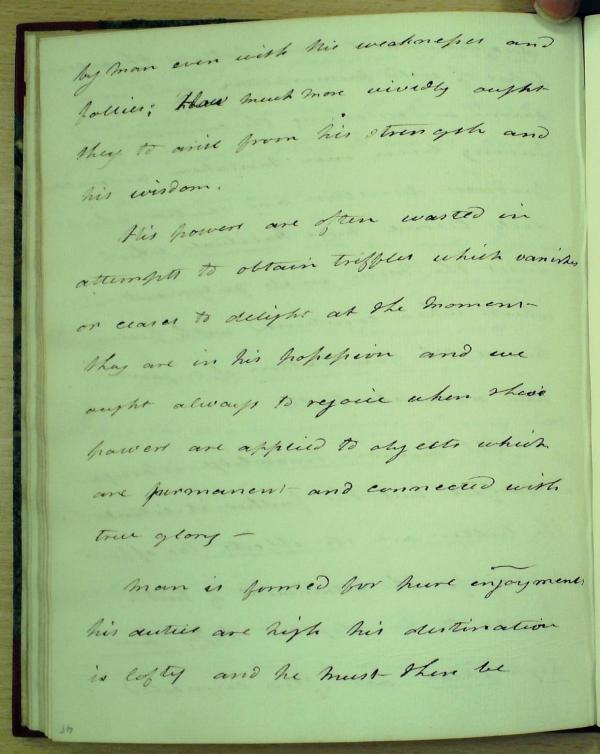 by man even with his weaknesses and
follies; How much more vividly ought
they to arise from his strength and
his wisdom.
His powers are often wasted in
attempts to obtain triffles which vanish
or ceases to delight at the moment
they are in his possession and we
ought always to rejoice when these
powers are applied to objects which
are permanent and connected with
true glory —
Man is formed for pure enjoyments
his duties are high his destination
is lofty and he must then be